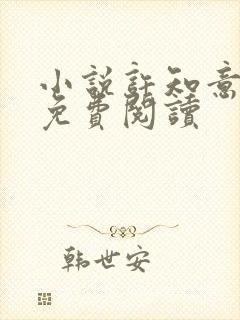 小説許知意
免費閱讀
韩世安